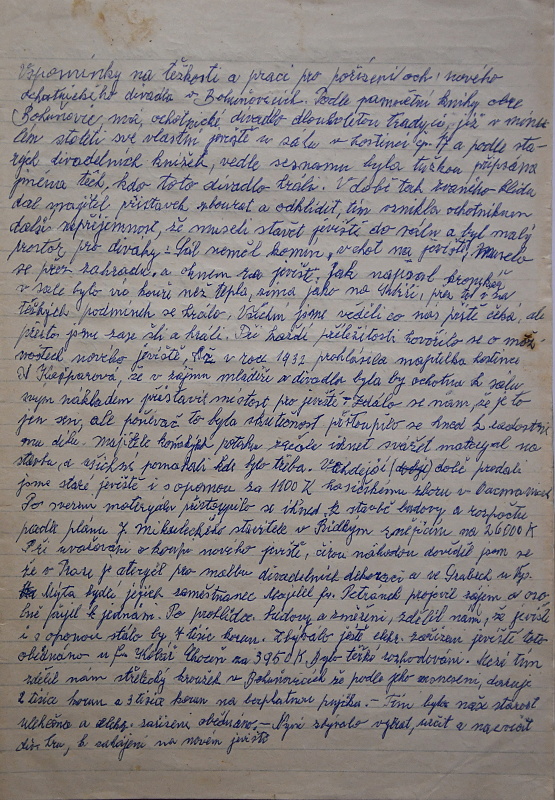 Vzpomínky na těžkosti a práci pro pořízení och. nového
ochotnického divadla v Bohuňovicích. Podle pamětní knihy obce
Bohuňovic má ochotnické divadlo dlouholetou tradyci, již v minu-
lém století své vlastní jeviště v sálu v hostinci čp. a podle sta-
rých divadelních knížek, vedle seznamu byla tužkou připsána
jména těch, kdo toto divadlo hráli. V době tak zvaného klidu
dal majitel přístavek zbourat a odklidit, tím vznikla ochotníkum
další nepříjemnost, že museli stavět jeviště do sálu a byl malý
prostor pro diváky. Sál neměl komín, vchod na jeviště, muselo
se přez zahradu, a oknem za jeviště. Jak napsal kronykář
v sále bylo víc kouře než tepla, zima jako na Sibiři, přez to i za
těžkých podmínek se hrálo. Všichni jsme věděli co nás příště čeká, ale
přesto jsme zase šli a hráli. Při každé příležitosti hovořilo se o mož-
nostech nového jeviště. Až v roce 1932 prohlásila majitelka hostince
A Kašparová, že v zájmu mládeže a divadla byla by ochotna k sálu
svým nákladem přistavit místnost pro jeviště – zdálo se nám, že je to
jen sen, ale poněvač to byla skutečnost přistoupilo se hned k radostné-
mu dílu. Majitelé koňských potahu začali ihned svážet materyal na
stavbu, a všichni pomáhali kde bylo třeba. V tehdejší době prodali
jsme staré jeviště i s oponou za 1800 K hasičskému sboru v
Po svezení materyálu přistoupilo se ihned k stavbě budovy a rozpočtu
podle plánu J. Mikuleckého stavitele v znějícím na 26000 K
Při uvažování o koupi nového jeviště, čirou náhodou dověděl jsem se
že v Praze je atelyér pro malbu divadelních dekorací a ve Hrabech u Vys.
Mýta bydlí jejich zaměstnanec. Majitel fy. Petránek projevil zájem a oso-
bně přijel k jednání. Po prohlídce budovy a změření, sdělil nám, že jeviště
i s oponou stálo by 7 tisíc korun. Zbývalo ještě elektr. zařízení jeviště toto
objednáno u fy Kolář Choceň za 3950 K. Bylo těžké rozhodování. Mezi tím
sdělil nám střelecký kroužek v Bohuňovicích že podle jeho usnesení, daruje
2 tisíce korun a 3 tisíce korun na bezplatnou pujčku. – Tím byla naše starost
ulehčena a elektr. zařízení objednáno. – Nyní zbývalo vybrat, určit a nacvičit
div. hru, k zahájení na novém jevišti